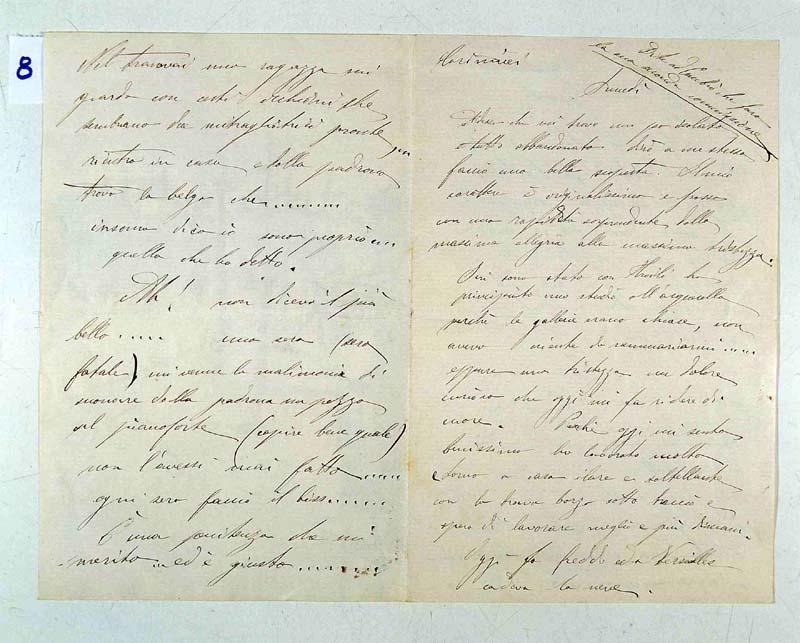 8
Nel tramvai una ragazza mi
guarda con certi occhioni che
sembrano da mitragliatrici pronte
rientro in casa e dalla padrona
trovo la belga che.........
insomma dico io sono proprio....
quello che ha detto.
Ah! non dicevo il più
bello..... una sera (sera
fatale) mi venne la malinconia di
suonare dalla padrona un pezzo
al pianoforte (capirai bene quale)
non l'avessi mai fatto.....
ogni sera faccio il biss......
È una penitenza che mi
merito... ed è giusto.........
la mia seconda commissione
Lunedì
che mi trovo un po isolato
e tutto abbandonato dirò a me stesso
faccio una bella scoperta. Il mio
carattere è originalissimo e passo
con una rapidità sorprendente dalla
massima allegria alla massima tristezza.
Ieri sono stato con ho
principiato uno studio all'acquarella
perchè le gallerie erano chiuse, non
avevo niente da rammaricarmi.....
eppure una tristezza un dolore
curioso che oggi mi fa ridere di
cuore. Perchè oggi mi sento
benissimo ho lavorato molto
torno a casa ilare e saltellante
con la brava borsa sotto braccio e
spero di lavorare meglio e più domani.
Oggi fa freddo ed a Versailles
cadeva la neve.